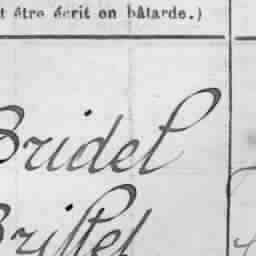 t être écrit en bâtarde.)
Bridel
Brillel